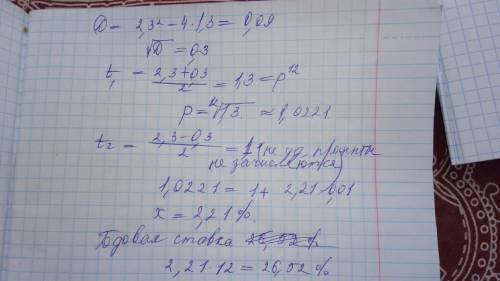 D = 2,3² - 4·1,3 = 0,09
√D = 0,3
t₁ = (2,3+0,3)/2 = 1,3 = p¹²
p = ¹²√1,3 ≈ 1,0221
t₂ = (2,3-0,3)/2 = 1 (не уд. проценты
не зачисляются)
1,0221 = 1 + 2,21·0,01
x = 2,21%.
Годовая ставка 26,52%
2,21·12 = 26,52%